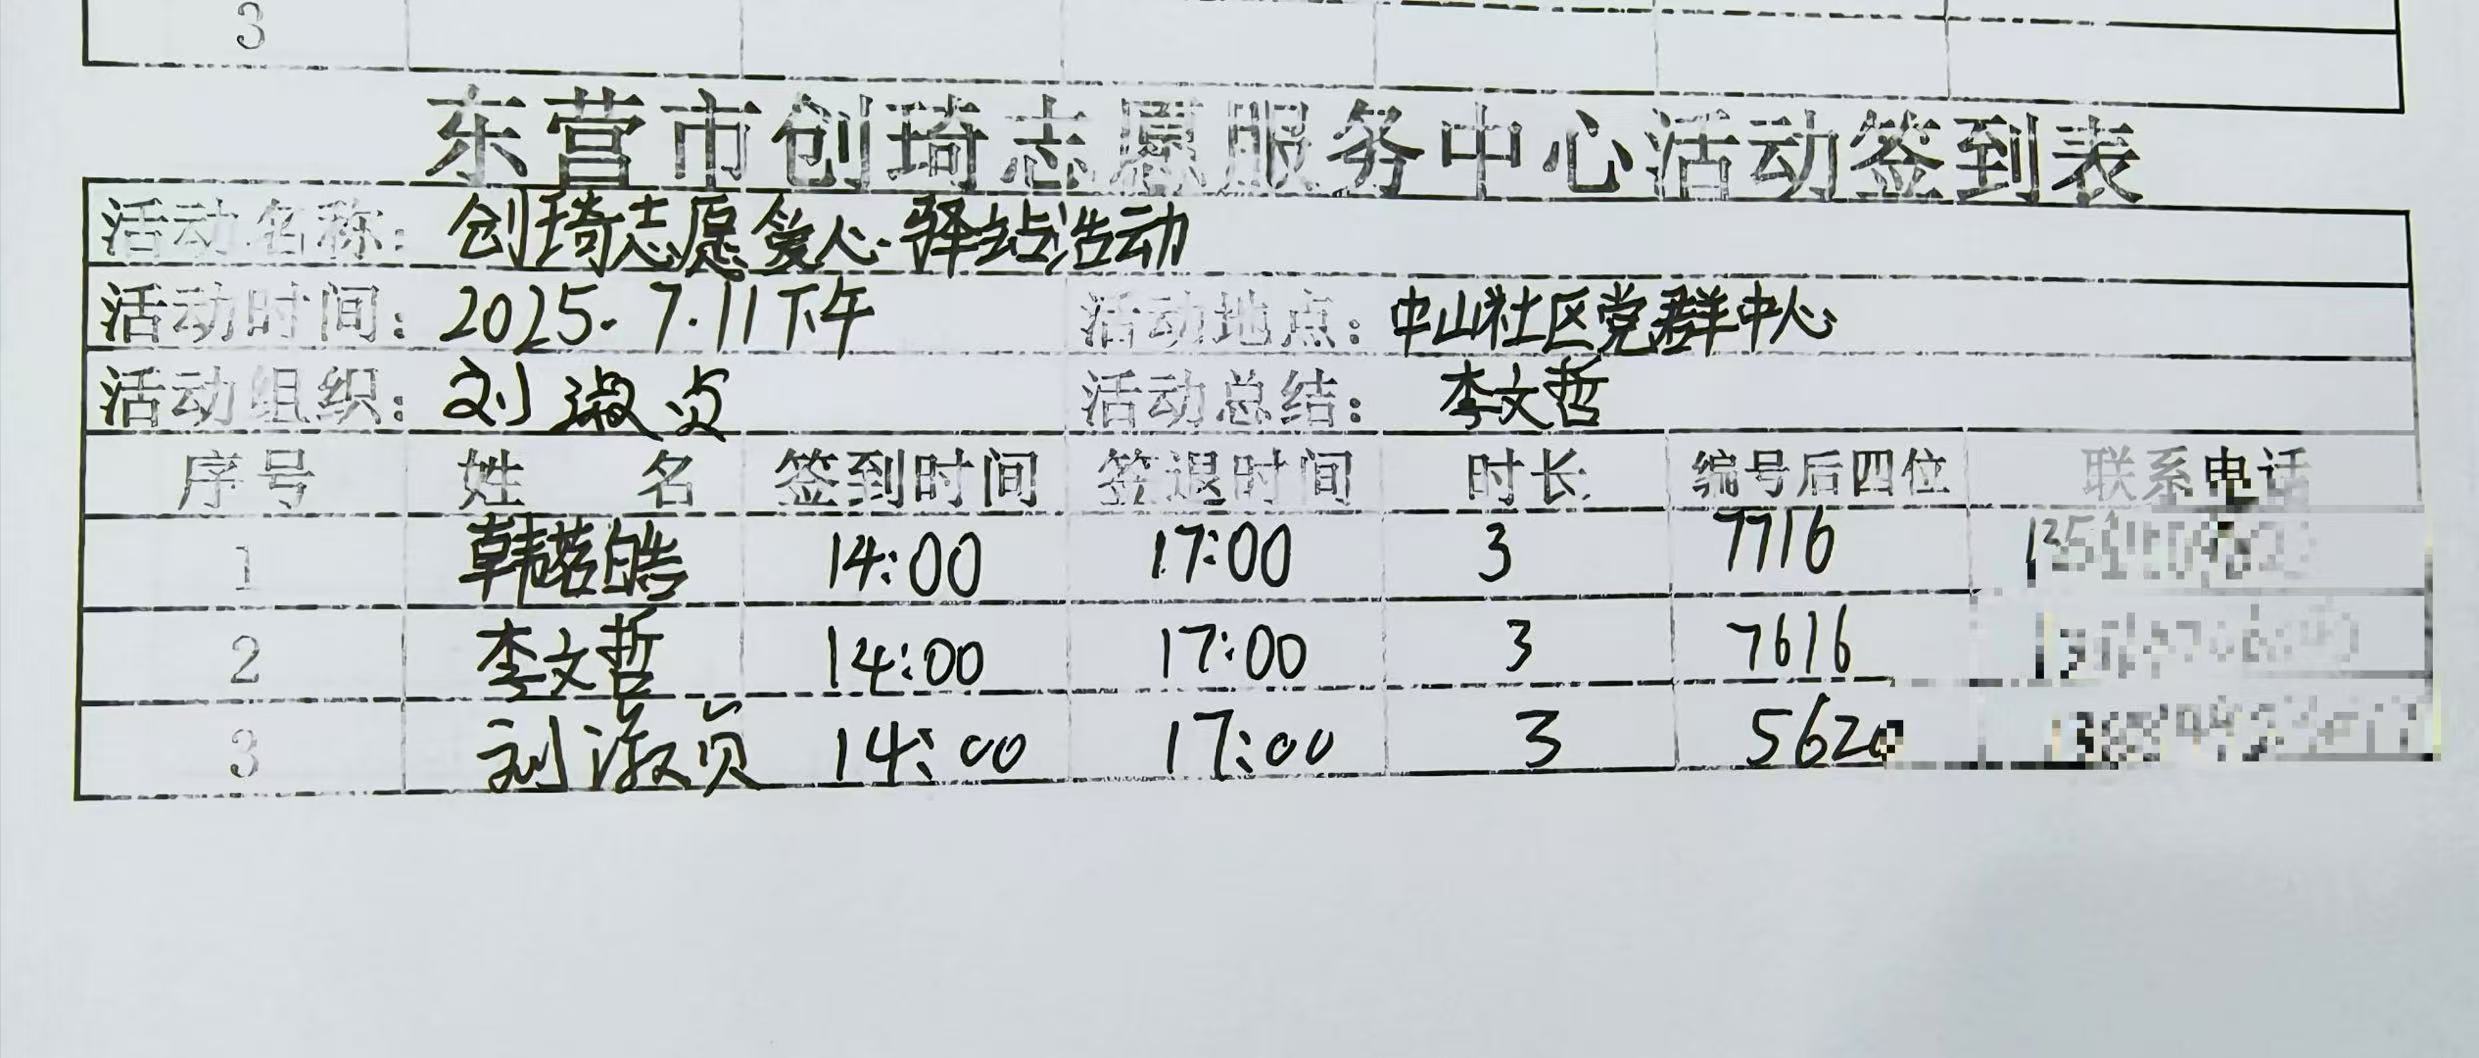 3
东营市创琦志愿服务中心活动签到表
活动名称: 创琦志愿爱心驿站活动
活动时间: 2025.7.11下午 活动地点: 中山社区党群中心
活动组织: 刘淑贞 活动总结: 李文哲
序号 姓 名 签到时间 签退时间 时长 编号后四位 联系电话
1 韩茗皓 14:00 17:00 3 7716
2 李文哲 14:00 17:00 3 7616
3 刘淑贞 14:00 17:00 3 5620